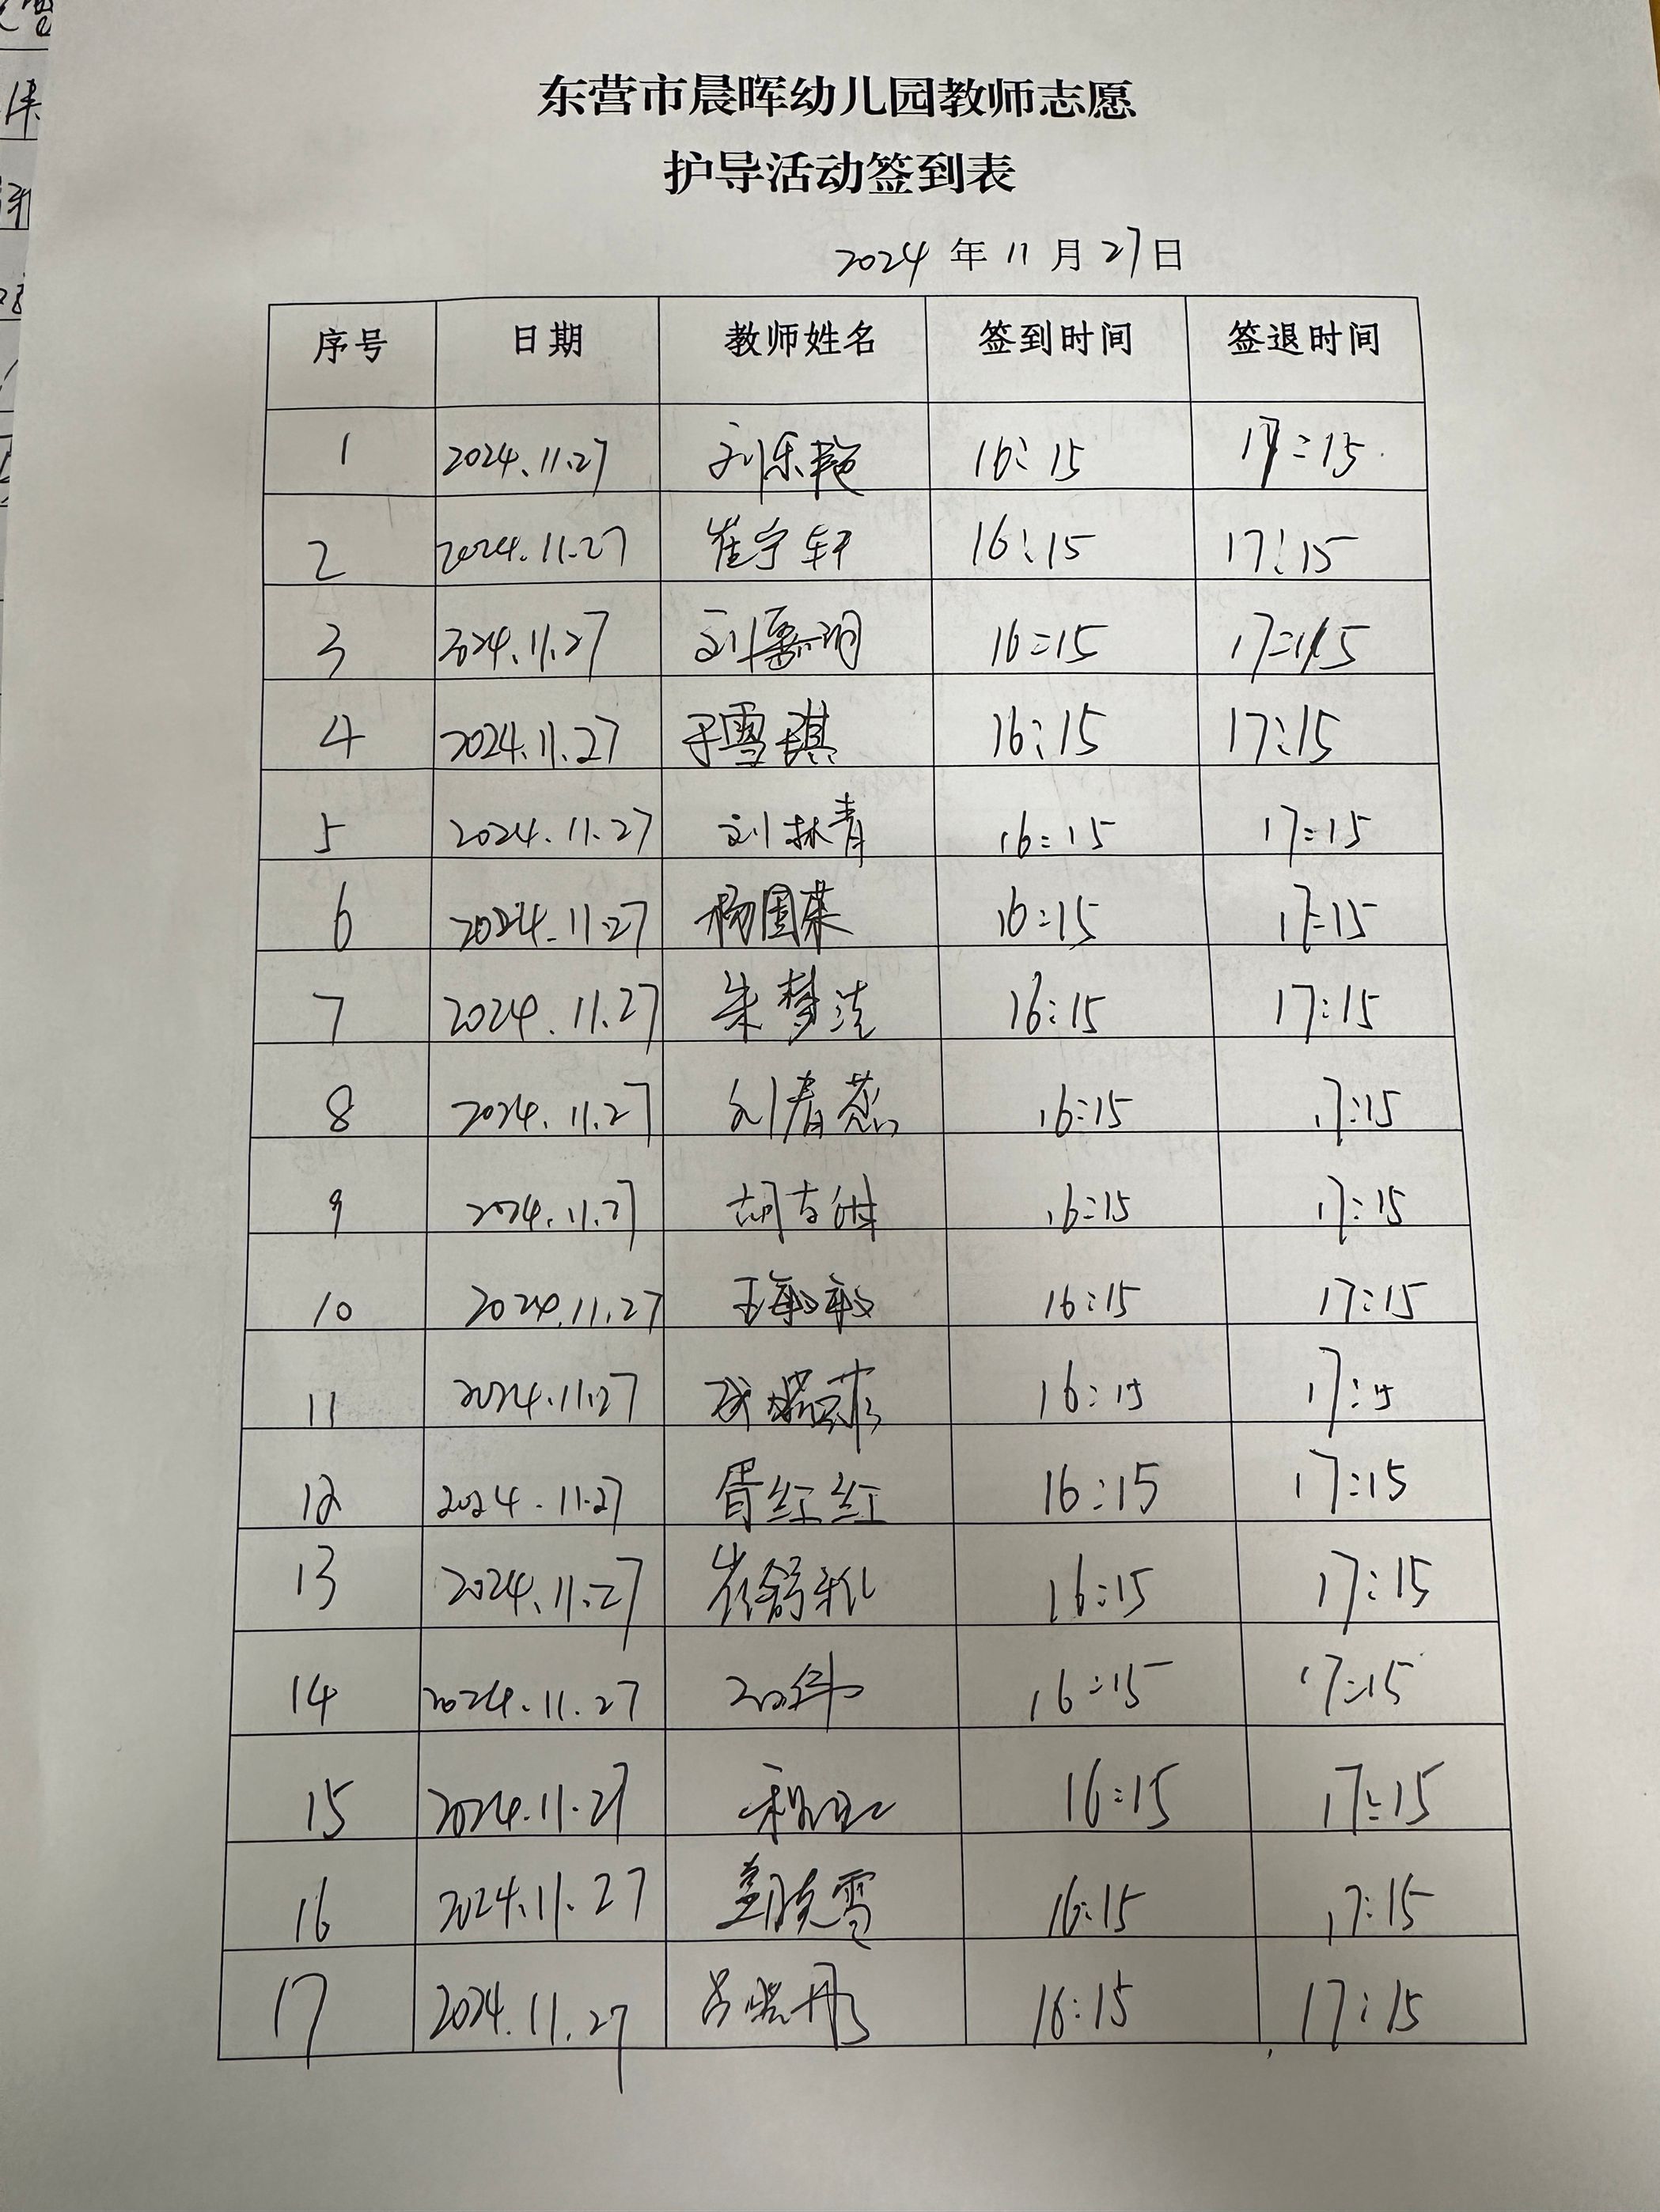 东营市晨晖幼儿园教师志愿
护导活动签到表
2024 年 11 月 27 日
序号 日期 教师姓名 签到时间 签退时间
1 2024.11.27 刘乐艳 16:15 17:15
2 2024.11.27 崔宁轩 16:15 17:15
3 2024.11.27 刘 16:15 17:15
4 2024.11.27 于雪琪 16:15 17:15
5 2024.11.27 刘林青 16:15 17:15
6 2024.11.27 杨国菜 16:15 17:15
7 2024.11.27 朱梦洁 16:15 17:15
8 2024.11.27 刘春蕊 16:15 17:15
9 2024.11.27 胡 16:15 17:15
10 2024.11.27 王敏敏 16:15 17:15
11 2024.11.27 16:15 17:15
12 2024.11.27 胥红红 16:15 17:15
13 2024.11.27 崔舒雅 16:15 17:15
14 2024.11.27 16:15 17:15
15 2024.11.27 16:15 17:15
16 2024.11.27 姜晓雪 16:15 17:15
17 2024.11.27 吕晓丹 16:15 17:15